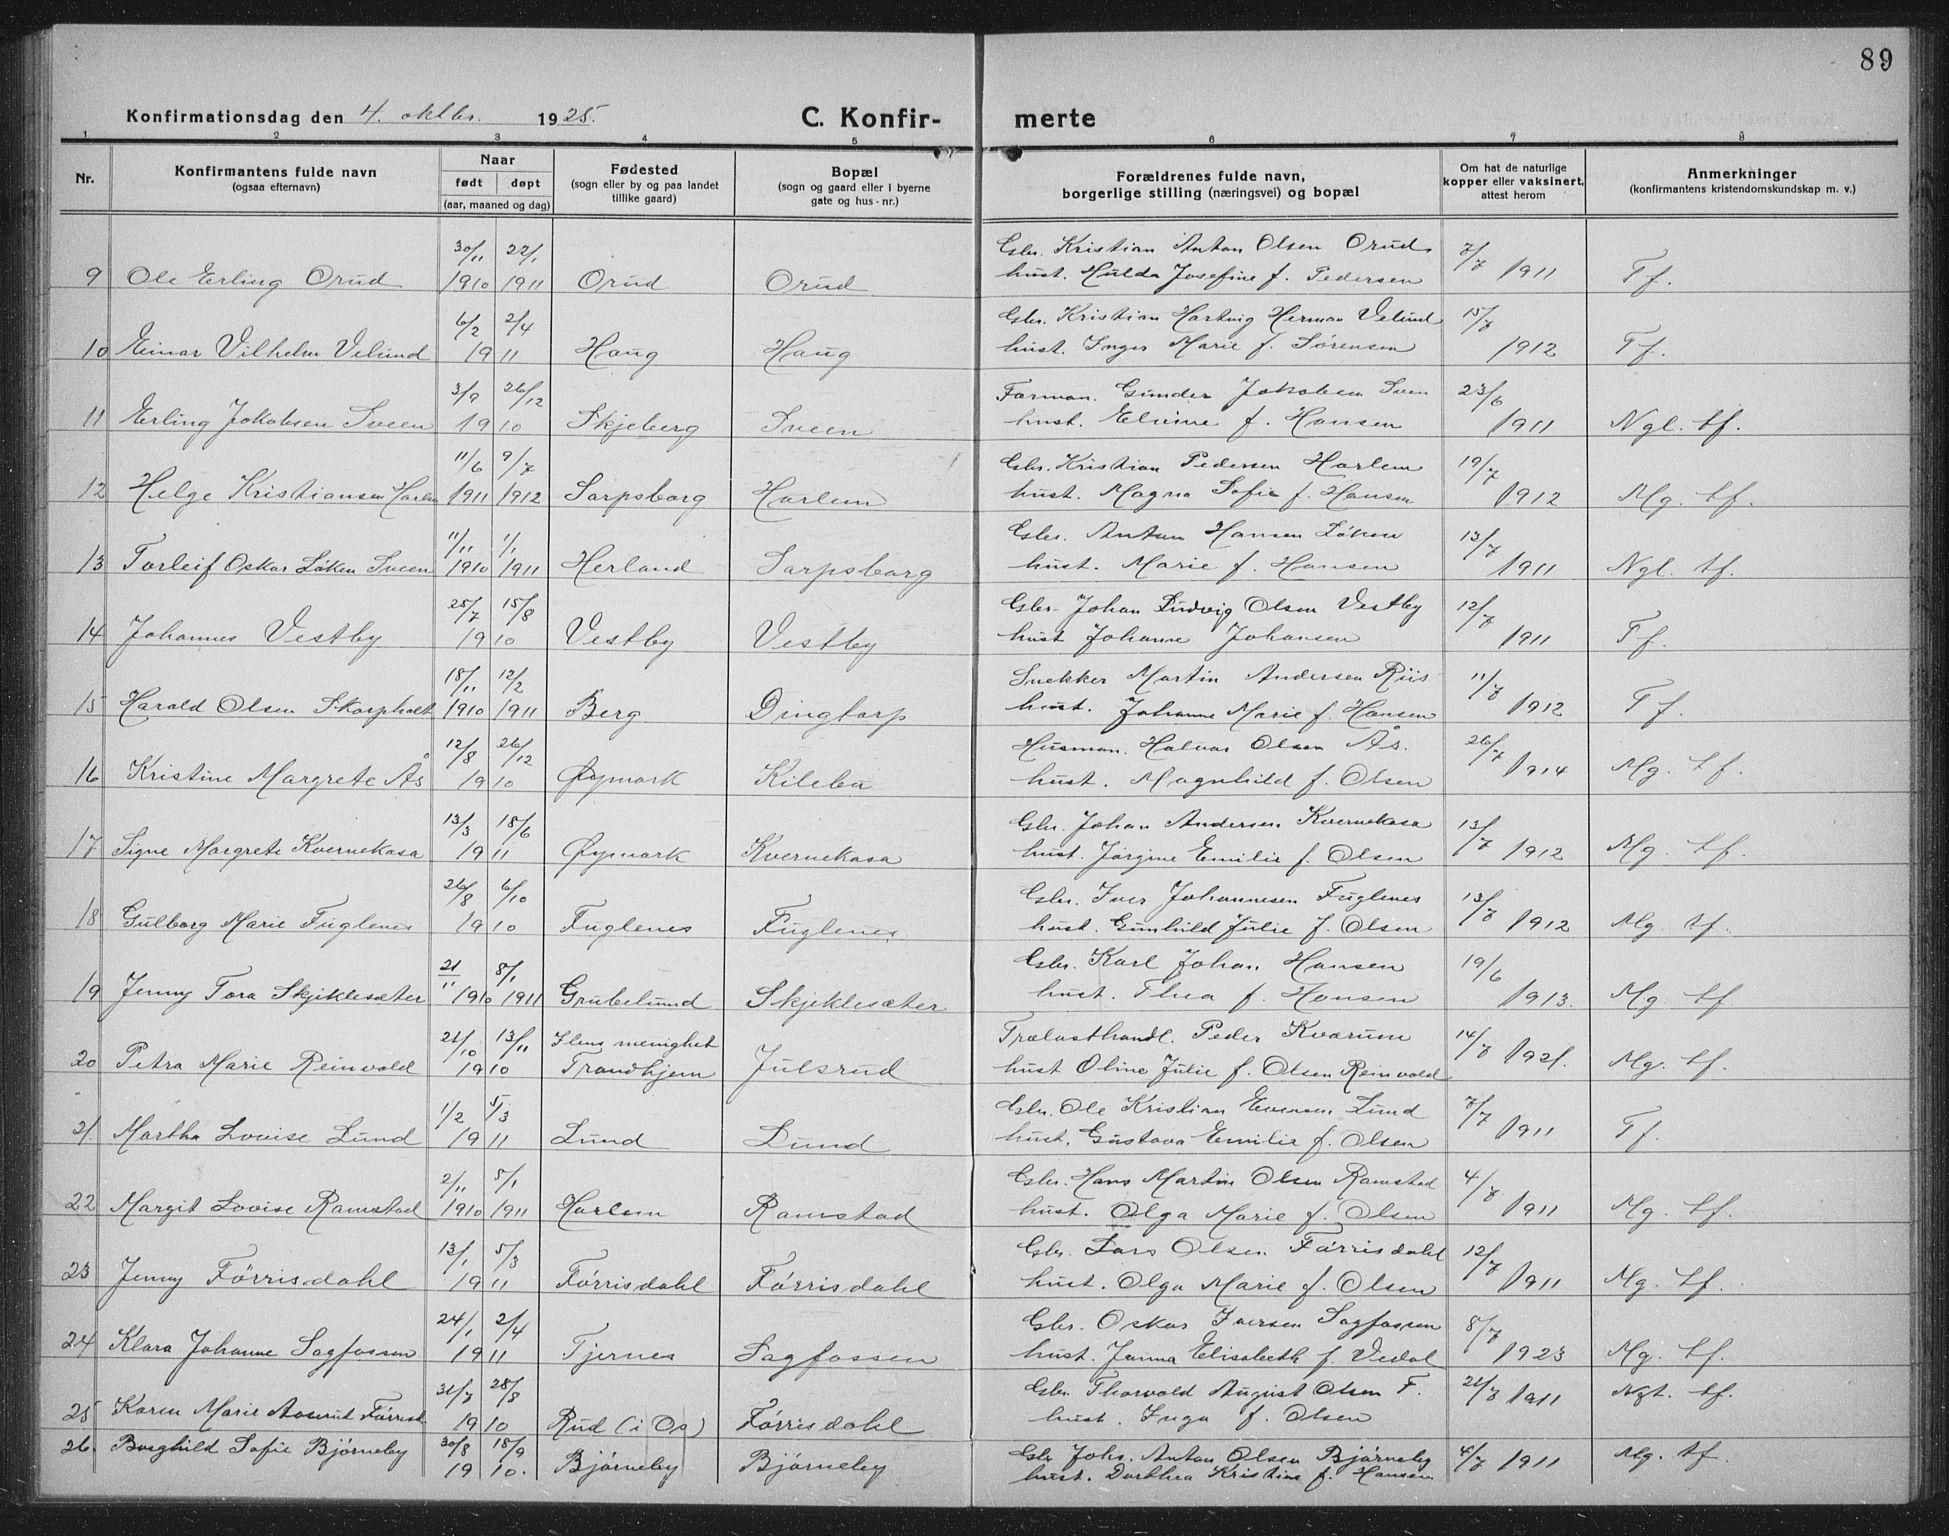 89
Konfirmationsdag den 4. oktbr. 1925.
C. Konfir- merte
1 2 3 4 5 6 7 8
Nr.
Konfirmantens fulde navn
(ogsaa efternavn)
Naar
født døpt
(aar, maaned og dag)
Fødested
(sogn eller by og paa landet
tillike gaard)
Bopæl
(sogn og gaard eller i byerne
gate og hus-nr.)
Forældrenes fulde navn,
borgerlige stilling (næringsvei) og bopæl
Om hat de naturlige
kopper eller vaksinert,
attest herom
Anmerkninger
(konfirmantens kristendomskundskap m. v.)
30/11 22/1 Gbr. Kristian Anton Olsen Orud, 7/7
9 Ole Erling Orud 1910 1911 Orud Orud hust. Hulda Josefine f. Pedersen 1911 Tf.
6/2 2/4 Gbr. Kristian Hartvig Herman Velund 15/7
10 Einar Vilhelm Velund 1911 Haug Haug hust. Inger Marie f. Sørensen 1912 Tf.
3/9 26/12 Formann. Gunder Jakobsen Sven 23/6
11 Erling Jakobsen Sveen 1910 Skjeberg Sveen hust. Elvine f. Hansen 1911 Ngl. tf.
11/6 9/7 Gbr. Kristian Pedersen Harlem 19/7
12 Helge Kristiansen Harlem 1911 1912 Sarpsborg Harlem hust. Magna Sofie f. Hansen 1912 Mg. tf.
11/11 1/1 Gbr. Anton Hansen Løken 13/7
13 Torleif Oskar Løken Sveen 1910 1911 Herland Sarpsborg hust. Marie f. Hansen 1911 Ngl. tf.
25/7 15/8 Gbr. Johan Ludvig Olsen Vestby 12/7
14 Johannes Vestby 1910 Vestby Vestby hust Johanne Johansen 1911 Tf.
18/11 12/2 Snekker Martin Andersen Riis 11/7
15 Harald Olsen Skorpholt 1910 1911 Berg Dingtorp hust. Johanne Marie f. Hansen 1912 Tf.
12/8 26/12 Husman. Halvor Olsen Ås. 26/7
16 Kristine Margrete Ås 1910 Øymark Kilebu hust. Magnhild f. Olsen 1914 Mg. tf.
13/3 18/6 Gbr. Johan Andersen Kvernekasa 13/7
17 Signe Margrete Kvernekasa 1911 Øymark Kvernekasa hust. Jørgine Emilie f. Olsen 1912 Mg. tf.
26/8 6/10 Gbr. Iver Johannesen Fuglenes 13/7
18 Gulborg Marie Fuglenes 1910 Fuglenes Fuglenes hust. Gunhild Julie f. Olsen 1912 Mg. tf.
21/11 8/1 Gbr. Karl Johan Hansen 19/6
19 Jenny Tora Skjiklesæter 1910 1911 Grubelund Skjeklesæter hust. Thea f. Hansen 1913. Mg. tf.
21/10 13/11 Ilens menighet Trælasthandl. Peder Kvarum 14/7
20 Petra Marie Reinvold 1910 Trondhjem Julsrud hust Oline Julie f. Olsen Reinvold 1921. Mg. tf.
1/2 5/3 Gbr. Ole Kristian Evensen Lund 7/7
21 Martha Lovise Lund 1911 Lund Lund hust. Gustava Emilie f. Olsen 1911 Tf.
2/11 5/1 Gbr. Hans Martin Olsen Ramstad 4/7
22 Margit Lovise Ramstad 1910 1911 Harlem Ramstad hust. Olga Marie f. Olsen 1911 Mg. tf.
13/1 5/3 Gbr. Lars Olsen Førrisdahl 12/7
23 Jenny Førrisdahl 1911 Førrisdahl Førrisdahl hust. Olga Marie f. Olsen 1911 Mg. tf.
24/1 2/4 Gbr. Oskar Iversen Sagfossen 8/7
24 Klara Johanne Sagfossen 1911 Tjernes Sagfossen hust. Janna Elisabeth f. Vedal 1923 Mg. tf.
31/7 28/8 Gbr. Thorvald August Olsen F. 21/7 1911 Ngt. tf.
25 Karen Marie Førrisd. 1910 Rud (i Os) Førrisdahl hust. Inga f. Olsen
26. Borghild Sofie Bjørneby 30/8 18/9 Gbr Johs. Anton Olsen Bjørneby 4/7 1911 Mg. tf.
1910. Bjørneby Bjørneby hust. Dorthea Kristine f. Hansen